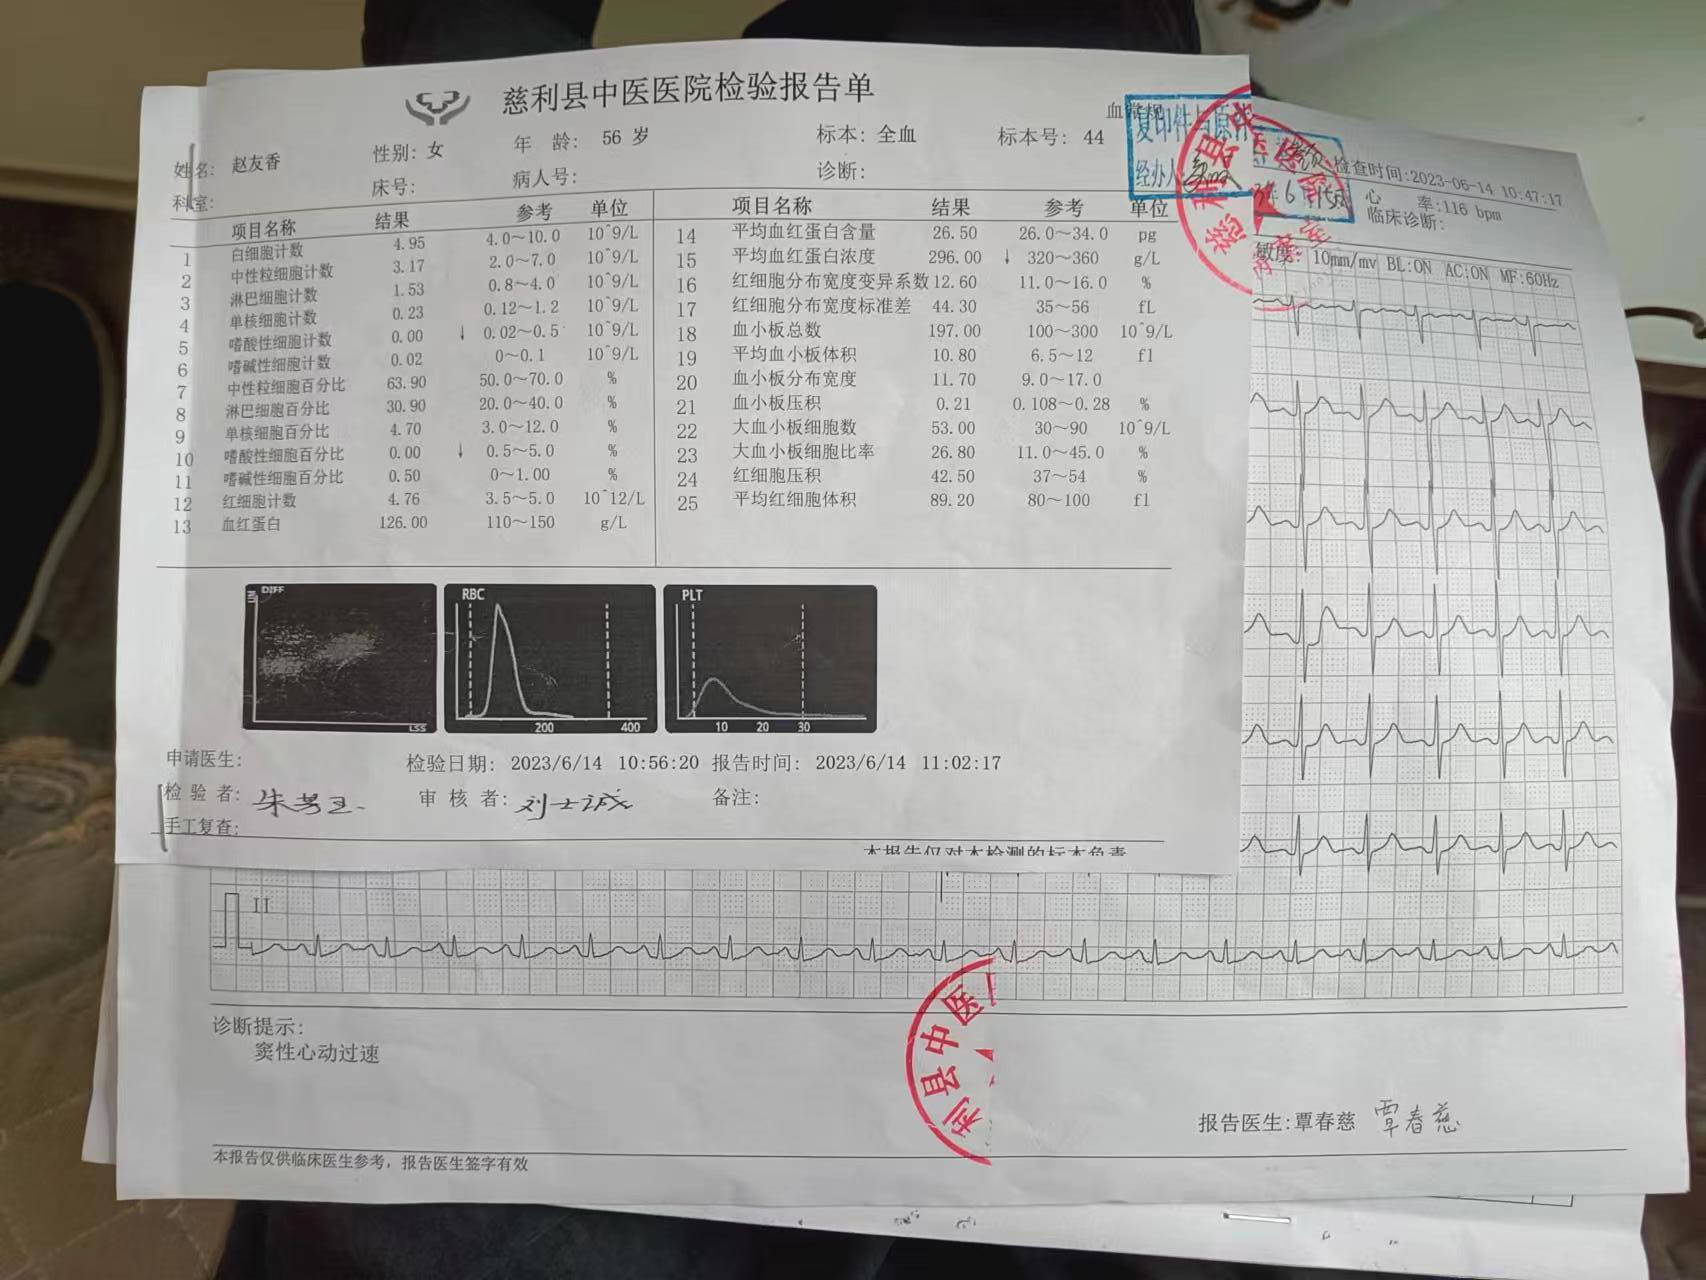 慈利县中医医院检验报告单
血常规
姓名: 赵友香 性别: 女 年 龄: 56 岁 标本: 全血 标本号: 44
科室: 床号: 病人号: 诊断:
项目名称 结果 参考 单位
1 白细胞计数 4.95 4.0～10.0 10^9/L
2 中性粒细胞计数 3.17 2.0～7.0 10^9/L
3 淋巴细胞计数 1.53 0.8～4.0 10^9/L
4 单核细胞计数 0.23 0.12～1.2 10^9/L
5 嗜酸性细胞计数 0.00 ↓ 0.02～0.5 10^9/L
6 嗜碱性细胞计数 0.02 0～0.1 10^9/L
7 中性粒细胞百分比 63.90 50.0～70.0 %
8 淋巴细胞百分比 30.90 20.0～40.0 %
9 单核细胞百分比 4.70 3.0～12.0 %
10 嗜酸性细胞百分比 0.00 ↓ 0.5～5.0 %
11 嗜碱性细胞百分比 0.50 0～1.00 %
12 红细胞计数 4.76 3.5～5.0 10^12/L
13 血红蛋白 126.00 110～150 g/L
项目名称 结果 参考 单位
14 平均血红蛋白含量 26.50 26.0～34.0 pg
15 平均血红蛋白浓度 296.00 ↓ 320～360 g/L
16 红细胞分布宽度变异系数 12.60 11.0～16.0 %
17 红细胞分布宽度标准差 44.30 35～56 fL
18 血小板总数 197.00 100～300 10^9/L
19 平均血小板体积 10.80 6.5～12 fl
20 血小板分布宽度 11.70 9.0～17.0
21 血小板压积 0.21 0.108～0.28 %
22 大血小板细胞数 53.00 30～90 10^9/L
23 大血小板细胞比率 26.80 11.0～45.0 %
24 红细胞压积 42.50 37～54 %
25 平均红细胞体积 89.20 80～100 fl
DIFF
LSS
RBC
200 400
PLT
10 20 30
申请医生: 检验日期: 2023/6/14 10:56:20 报告时间: 2023/6/14 11:02:17
检 验 者: 审 核 者: 刘士诚 备注:
手工复查:
本报告仅对本检测的标本负责
复印件与原件
经办人
检查时间:2023-06-14 10:47:17
心 率:116 bpm
临床诊断:
敏度: 10mm/mv BL:ON AC:ON MF:60Hz
II
诊断提示:
窦性心动过速
利县中医
报告医生:覃春慈 覃春慈
本报告仅供临床医生参考，报告医生签字有效